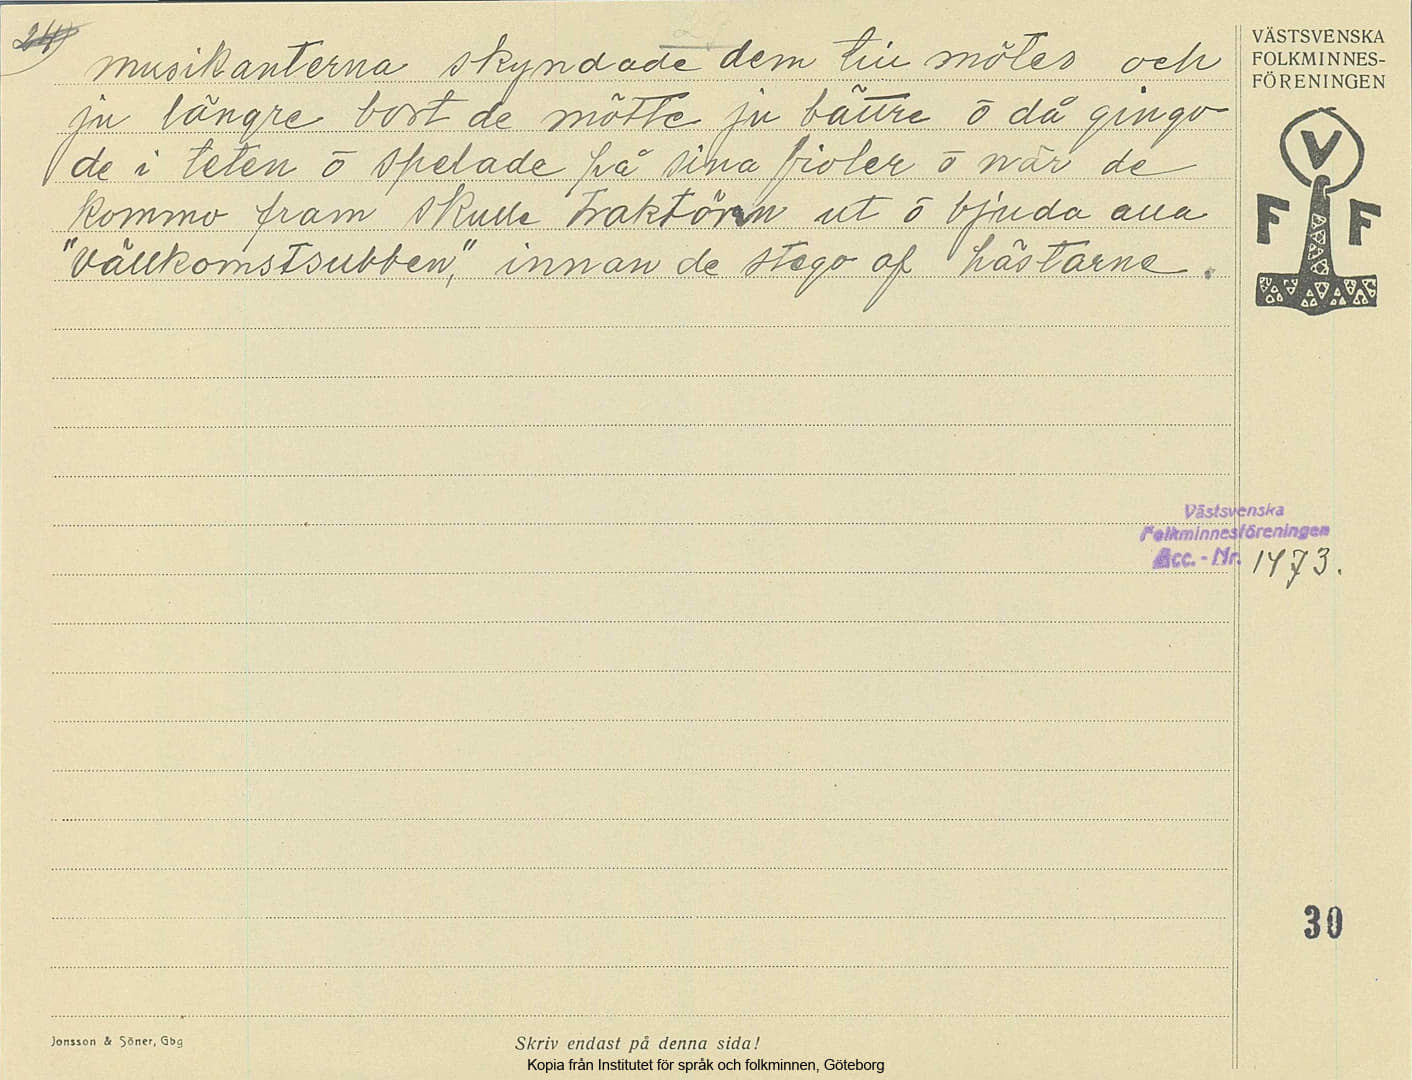 24
musikanterna skyndade dem till mötes och
ju längre bort de mötte ju bättre ō då gingo
de i teten ō spelade på sina fioler ō när de
kommo fram skulle traktörn ut ō bjuda alla
"Vällkomstsubben," innan de stego af hästarne.
VÄSTSVENSKA
FOLKMINNES-
FÖRENINGEN
V
F F
Västsvenska
Folkminnesföreningen
Acc. - Nr. 1473.
30
Jonsson & Söner, Gbg
Skriv endast på denna sida!
Kopia från Institutet för språk och folkminnen, Göteborg